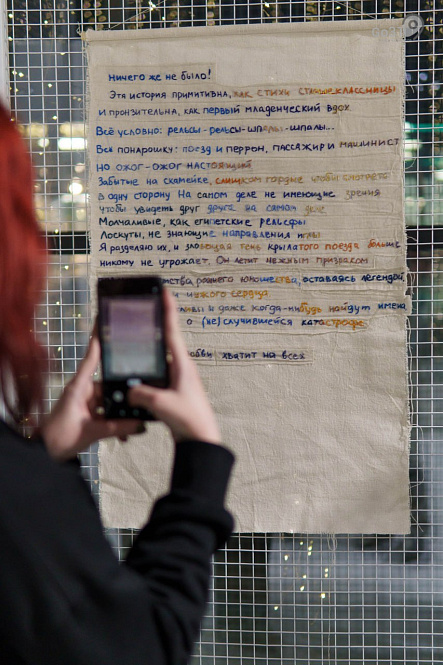 Ничего же не было!
Эта история примитивна, как стихи старшеклассницы
И пронзительна, как первый младенческий вдох
Всё условно: рельсы-рельсы-шпалы-шпалы...
Всё понарошку: поезд и перрон, пассажир и машинист
Но ожог-ожог настоящий
Забытые на скамейке, слишком гордые чтобы смотреть
в одну сторону На самом деле не имеющие зрения
чтобы увидеть друг друга на самом деле
Молчаливые, как египетские рельефы
Лоскуты, не знающие направления иглы
Я разделяю их, и зловещая тень крылатого поезда больше
никому не угрожает. Он летит нежным призраком
оставаясь легендой
и сердца
и даже когда-нибудь найдут имена
о (не)случившейся катастрофе
хватит на всех